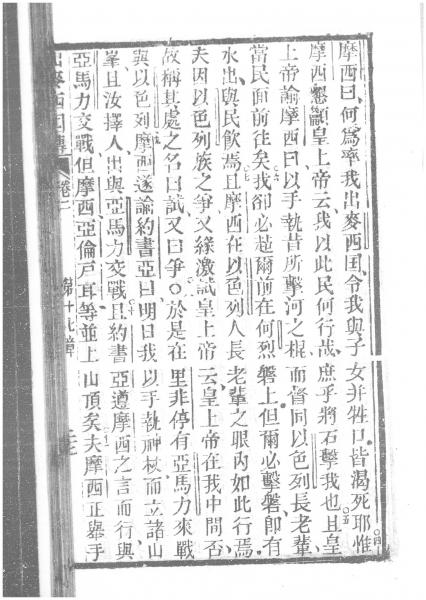 摩西曰何爲率我出麥西囯令我與子女并牲口皆渴死耶惟
摩西懇籲皇上帝云我以此民何行哉庶乎將石擊我也且皇
上帝諭摩西曰以手執昔所擊河之棍而督同以色列長老輩
當民面前往矣我卻必起爾前在何烈磐上但爾必擊磐卽有
水出與民飲焉且摩西在以色列人長老輩之眼內如此行焉
夫因以色列族之爭又緣激試皇上帝云皇上帝在我中間否
故稱其處之名曰試又曰爭○於是在里非停有亞馬力來戰
與以色列摩西遂諭約書亞曰明日我以手執神杖而立諸山
峯且汝擇人出與亞馬力交戰且約書亞遵摩西之言而行與
亞馬力交戰但摩西亞倫戶耳等並上山頂矣夫摩西正舉手
出麥西囯傳 卷二 第十七章